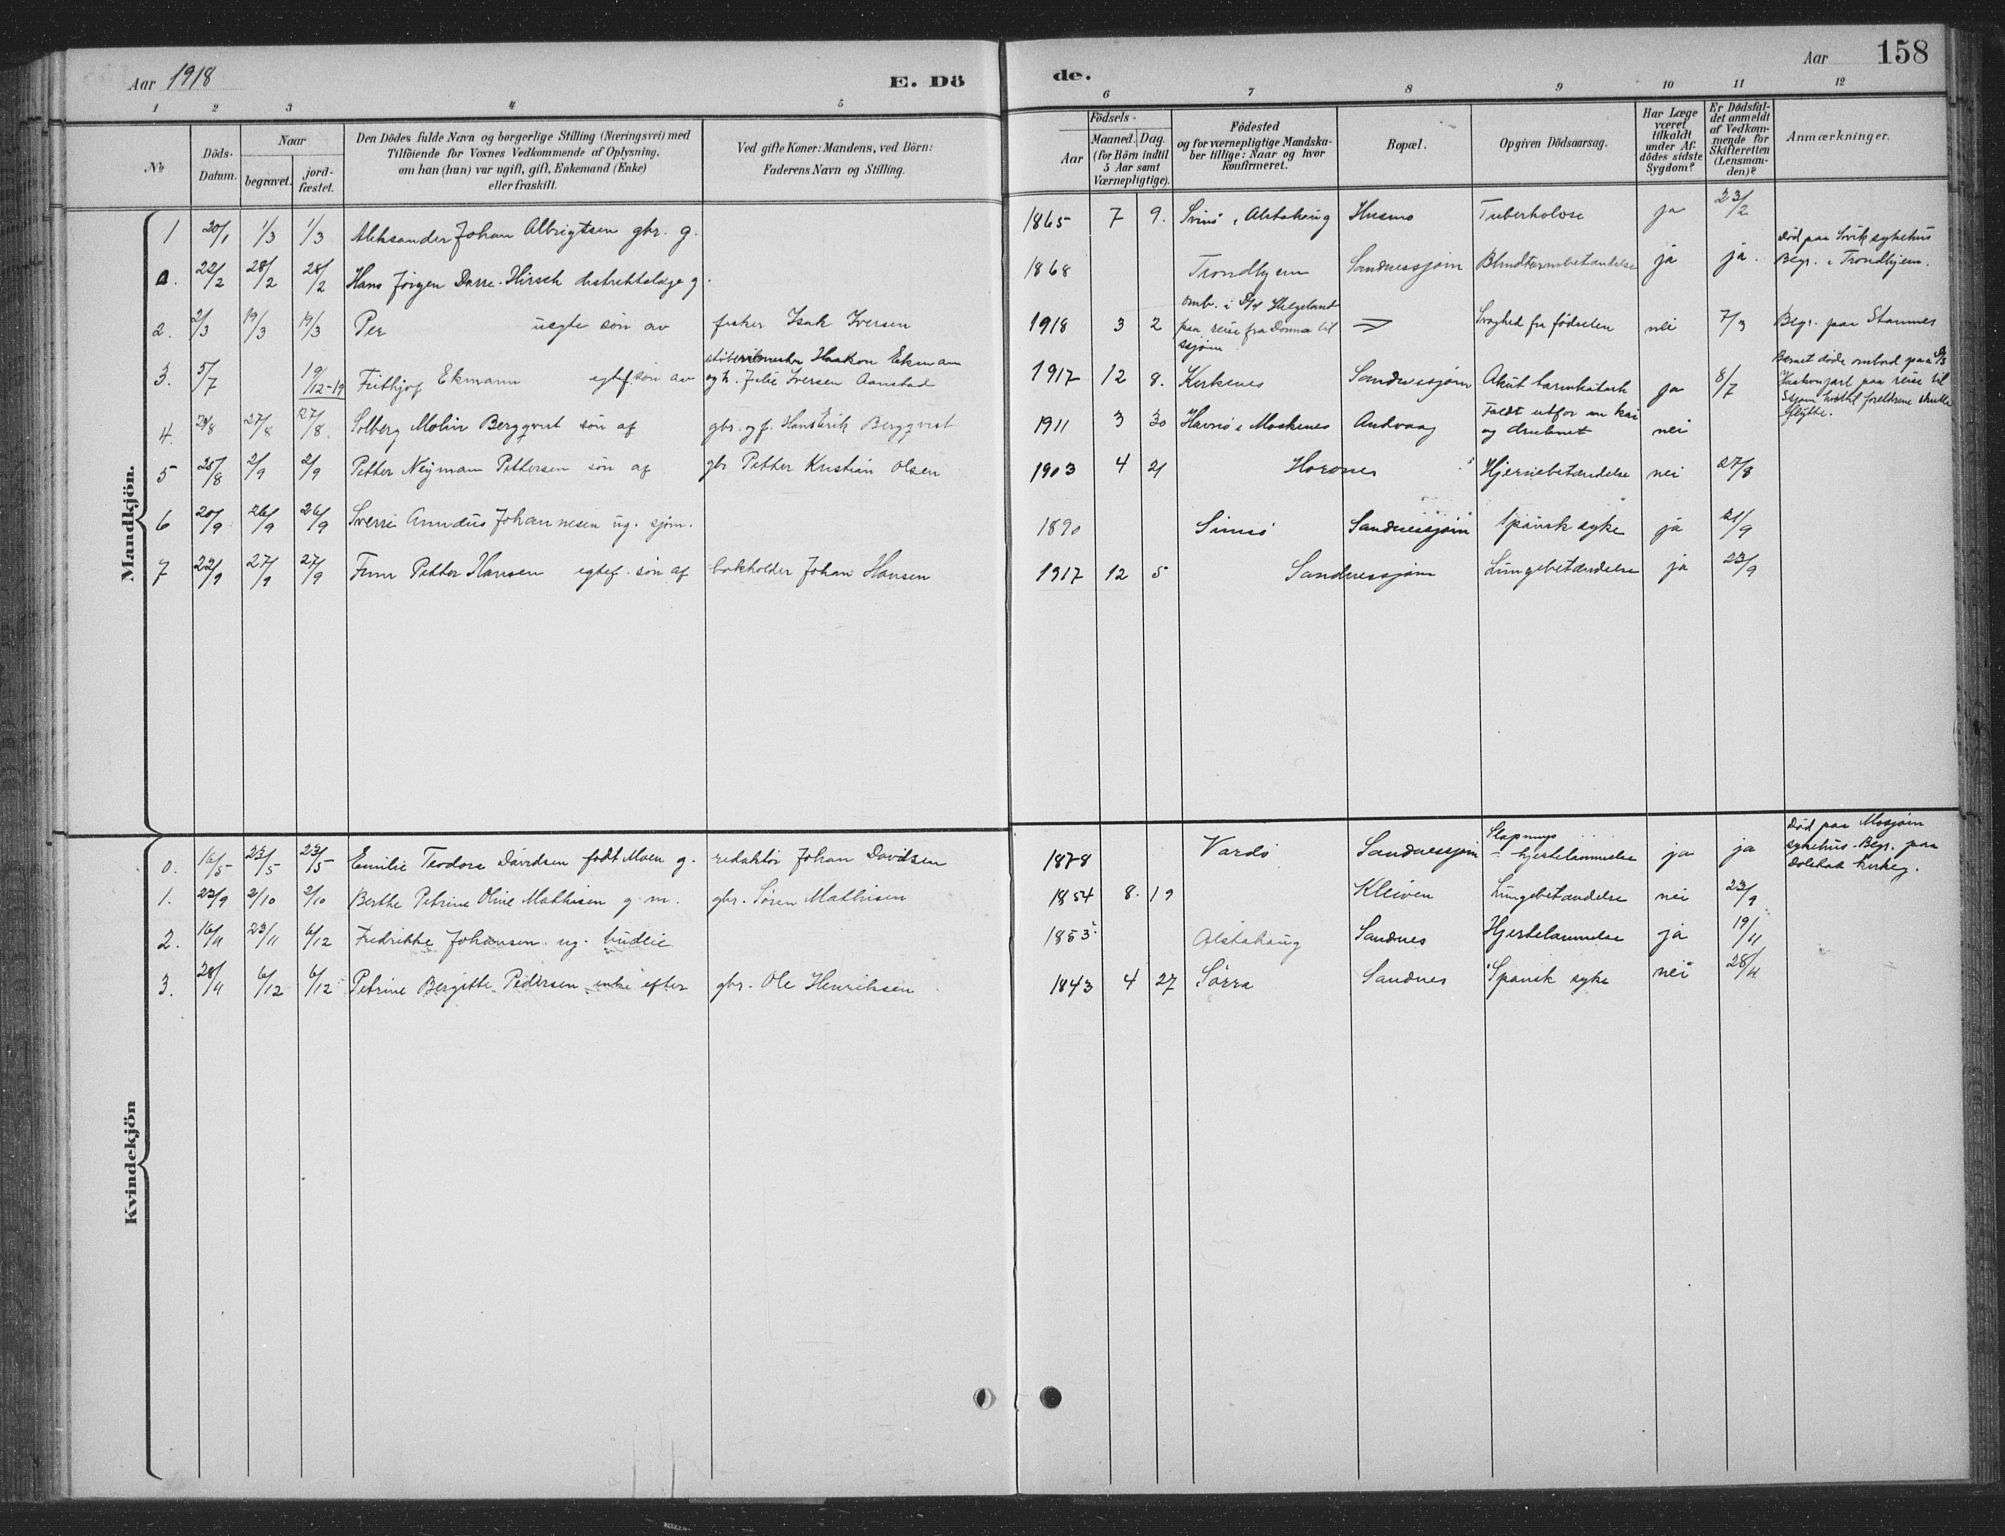 Aar 1918
E. Dö
de.
Aar
158
1 2 3 4 5
6 7 8 9 10 11 12
No
Döds-Datum.
Naar
begravet.
jord-fæstet.
Den Dödes fulde Navn og borgerlige Stilling (Næringsvei) med
Tilföiende for Voxnes Vedkommende af Oplysning.
om han (hun) var ugift, gift, Enkemand (Enke)
eller fraskilt.
Ved gifte Koner: Mandens, ved Börn:
Faderens Navn og Stilling.
Födsels-
Aar
Maaned. Dag.
(for Börn indtil
5 Aar samt
Værnepligtige).
Födested
og for værnepligtige Mandska-
ber tillige: Naar og hvor
konfirmeret.
Bopæl.
Opgiven Dödsaarsag.
Har Læge
været
tilkaldt
under Af-
dödes sidste
Sygdom?
Er Dødsfal-
det anmeldt
af Vedkom-
mende for
Skifteretten
(Lensman-
den)?
Anmærkninger.
Mandkjön.
1 20/1 1/3 1/3 Aleksander Johan Albrigtsen gbr. g. 1865 7 9. Svinö, Alstahaug Husmo Tuberkolose ja 23/2
0. 22/2 28/2 28/2 Hans Jörgen Darre-Hirsch distriktslæge g. 1868 Trondhjem Sandnessjöen Blindtarmbetændelse ja ja. Död paa Sövik sykehus
Begr. i Trondhjem.
2. 2/3 19/3 19/3 Per uegte sön av fisker Isak Iversen 1918 3 2 omb. i D/S Helgeland
paa reise fra Dønna til
ssjøen Svaghed fra födselen nei 7/3 Begr. paa Stamnes
3. 5/7 19/12-19 Frithjof Ekmann egtef. sön av Haakon Ekmann
og h. Julie Iversen Aanstad 1917 12 8. Kirkenes Sandnessjöen Akut tarmkatark ja 8/7 Barnet døde ombord paa D/S
Haakonjarl paa reise til
Ssjøen hvortil foreldrene skulle
flytte.
4. 24/8 27/8 27/8. Solberg Molin Bergqvist sön af gbr. og f. Hans Erik Bergqvist 1911 3 30 Havnö i Moskenes Andvaag Faldt utfor en kai
og druknet nei
5 25/8 2/9 2/9 Petter Neuman Pettersen sön af gbr Petter Kristian Olsen 1903 4 21 Horvnes Hjernebetændelse nei 27/8
6 20/9 26/9 26/9 Sverre Amndus Johannesen ug. sjøm. 1890 Sandnessjøen Spansk syke ja 21/9
7 22/9 27/9 27/9 Finn Petter Hansen egtef. sön af bokholder Johan Hansen 1917 12 5 Sandnessjøen Lungebetændelse ja 23/9
Kvindekjön
0. 16/5 23/5 23/5 Emilie Teodore Davidsen født Moen g. redaktör Johan Davidsen 1878 Vardö Sandnessjøen Slapnings
- hjertelammelse ja ja Död paa Mosjøen
sykehus. Begr. paa
Dolstad kirkeg.
1. 22/9 2/10 2/10 Berthe Petrine Oline Mathisen g. m. gbr. Sören Mathisen 1854 8. 19 Kleiven Lungebetændelse nei 23/9
2. 16/11 23/11 6/12 Fredrikke Johansen ug. budeie 1853 Alstahaug Sandnes Hjertelammelse ja 19/11
3. 28/11 6/12 6/12 Petrine Bergitte Pedersen enke efter gbr. Ole Henriksen 1843 4 27 Sörra Sandnes Spansk syke nei 28/11